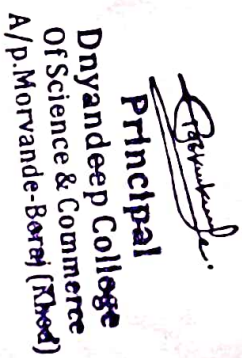 Principal
Dnyandeep College
Of Science & Commerce
A/p.Morvande-Boraj (Khed)